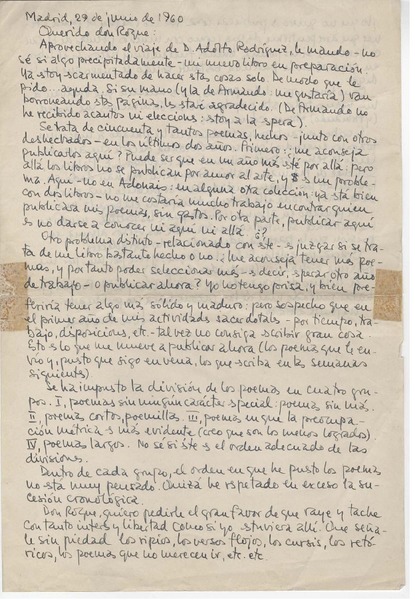 Madrid, 29 de junio de 1960
Querido don Roque:
Aprovechando el viaje de D. Adolfo Rodríguez, le mando - no
sé si algo precipitadamente - un nuevo libro en preparación.
Ya estoy escarmentado de hacer estas cosas solo. De modo que le
pido... ayuda. Si su mano (y la de Armando me gustaría) van
borroneando esta página, les estaré agradecido. (De Armando no
he recibido acantos ni elecciones: estoy a la espera).
Se trata de cincuenta y tantos poemas, hechos - junto con otros
deshechados - en los últimos dos años. Primero: ¿me aconseja
publicarlos aquí? Puede ser que en un año más esté por allá: pero
allá los libros no se publican por amor al arte, y es un proble-
ma. Aquí - no en Adonais: en alguna otra colección: ya está bien
con dos libros - no me costaría mucho trabajo encontrar quien
publicara mis poemas, sin gastos. Por otra parte, publicar aquí
es no darse a conocer ni aquí ni allá ¿?
Otro problema distinto - relacionado con este - es juzgar si se tra-
ta de un libro bastante hecho o no: ¿me aconseja tener más poe-
mas, y por tanto poder seleccionar más - es decir, esperar otro año
de trabajo - o publicar ahora? Yo no tengo prisa, y bien pre-
feriría tener algo más sólido y maduro: pero sospecho que en
el primer año de mis actividades sacerdotales - por tiempo, tra-
bajo, disposiciones, etc. - tal vez no consiga escribir gran cosa.
Esto es lo que me mueve a publicar ahora (los poemas que le en-
vío y, puesto que sigo en vena, los que escriba en las semanas
siguientes).
Se ha impuesto la división de los poemas en cuatro gru-
pos. I, poemas sin ningún carácter especial: poemas sin más.
II, poemas cortos, poemillas. III, poemas en que la preocupa-
ción métrica es más evidente (creo que son los menos logrados).
IV, poemas largos. No sé si éste es el orden adecuado de las
divisiones.
Dentro de cada grupo, el orden en que he puesto los poemas
no está muy pensado. Quizá he respetado en exceso la su-
cesión cronológica.
Don Roque, quiero pedirle el gran favor de que raye y tache
con tanto interés y libertad como si yo estuviera allí. Que seña-
le sin piedad los ripios, los versos flojos, los cursis, los retó-
ricos, los poemas que no merecen ir, etc. etc.